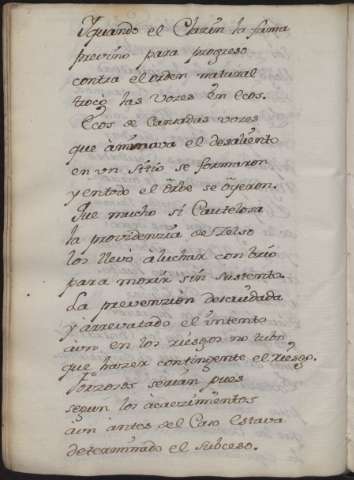 Y quando el Clarin la fama
previno para progreso
contra el orden natural
trocó las vozes en Ecos.
Ecos de Cansadas vozes
que aminava el desaliento
en un Sitio se formaron
y en todo el Orbe se Oyeron.
Que mucho si Cautelosa
la providenzia de
los llevó à luchar con brio
para morir sin sustento.
La prevenzion descuidada
y arrevatado el intento
aun en los riesgos no
que hazer contingente el riesgo.
forzosos serian pues
segun los acaezimentos
aun antes del Caso Estava
determinado el subceso.